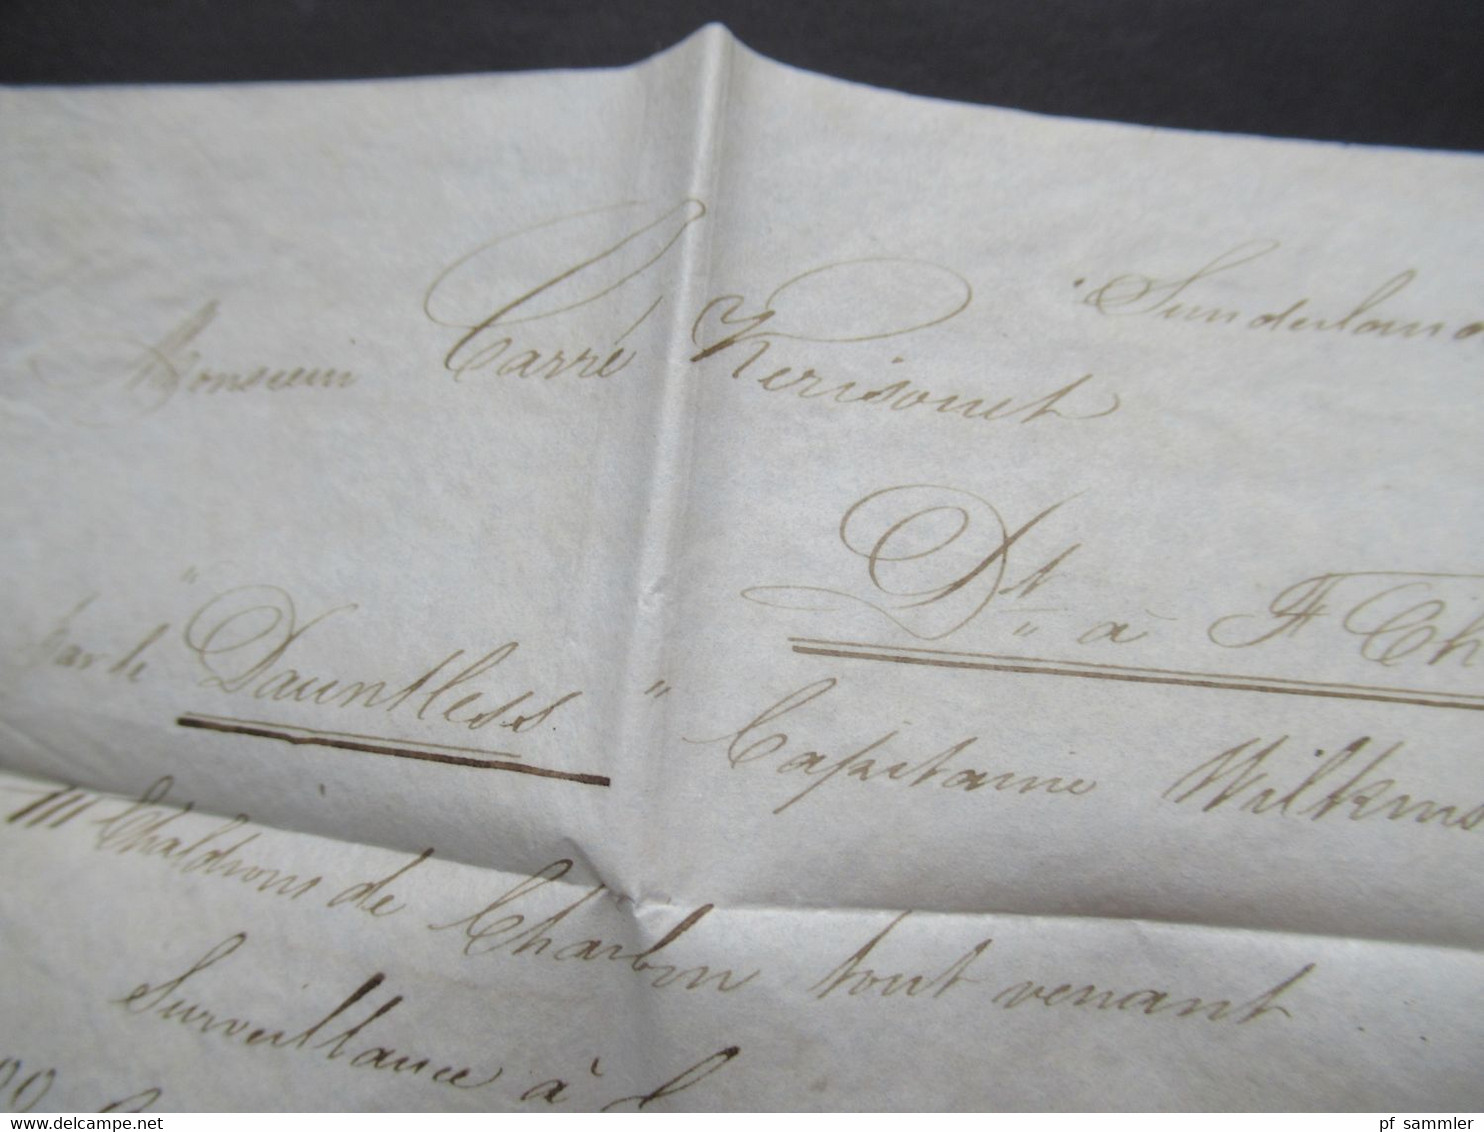 Sunderland
Monsieur Carré Kerisouet
Dt. à F Ch
par le "Dauntless" Capitaine Wilkins
111 Chaldrons de Charbon tout venant
Surveillance à
delcampe.net
pf sammler